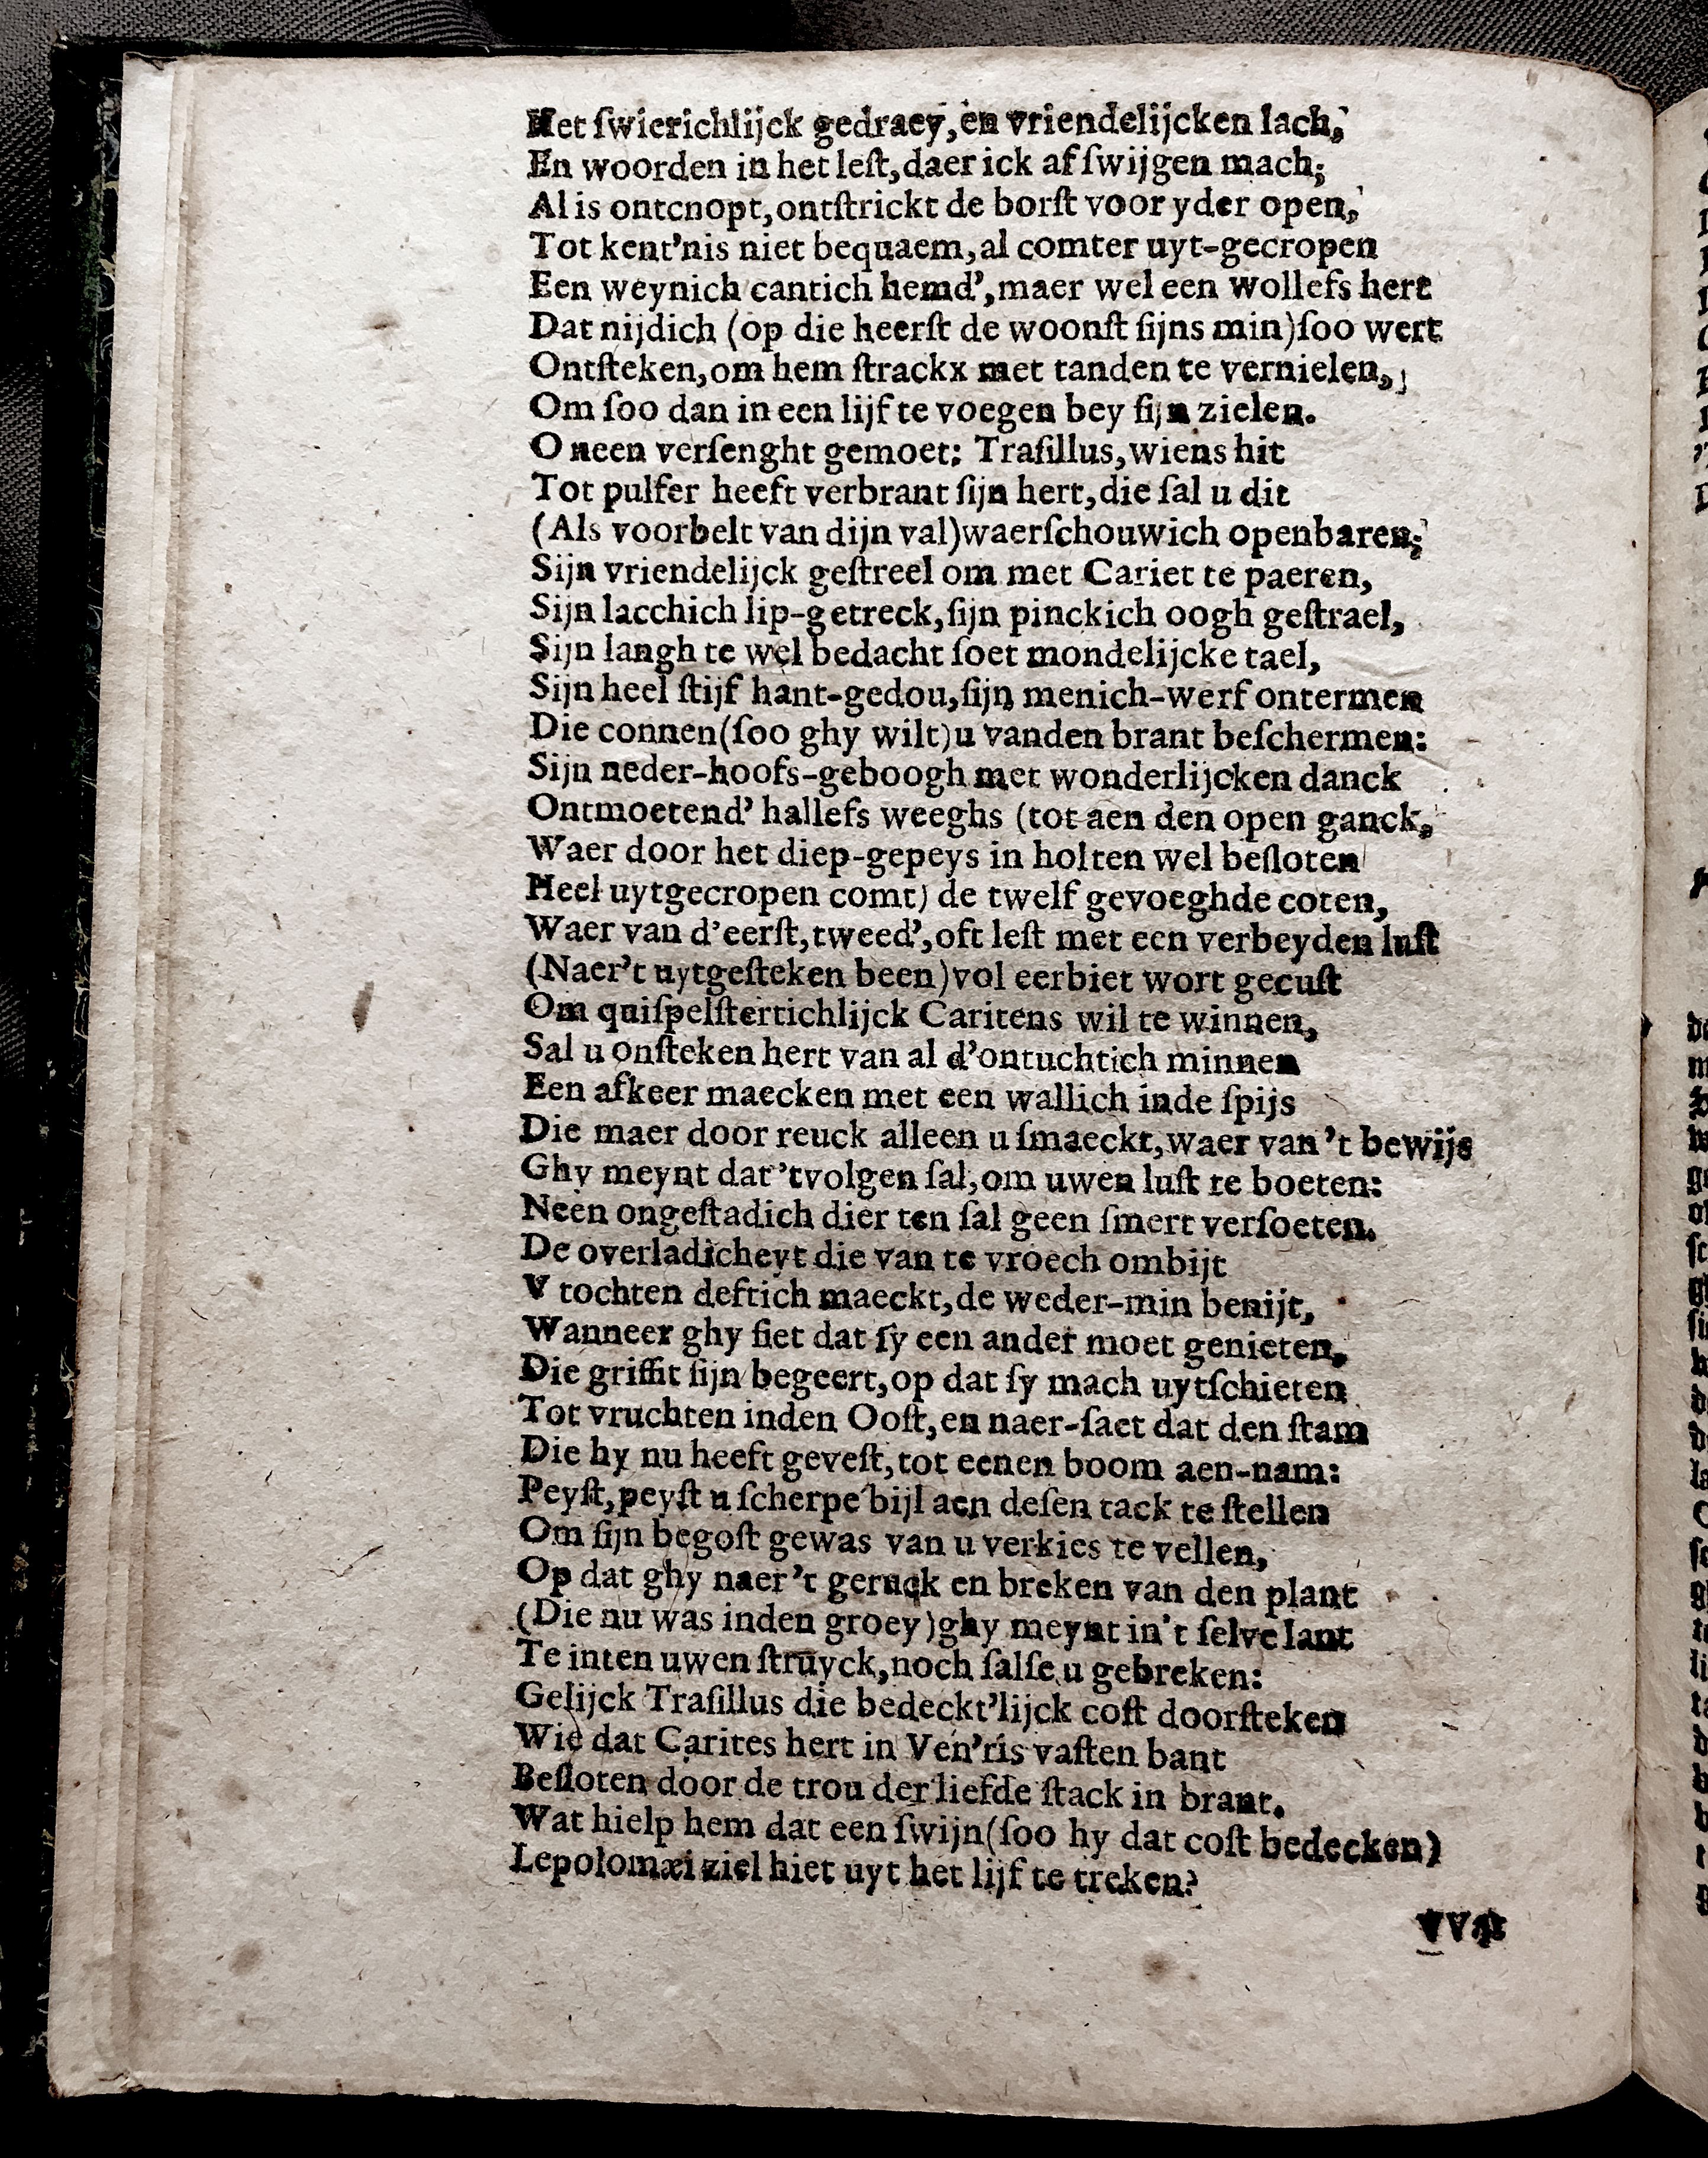 Het ſwierichlijck gedraey, en vriendelijcken lach,
En woorden in het leſt, daer ick af ſwijgen mach;
Al is ontcnopt, ontſtrickt de borſt voor yder open,
Tot kent'nis niet bequaem, al comter uyt-gecropen
Een weynich cantich hemd', maer wel een wollefs hert
Dat nijdich (op die heerſt de woonſt ſijns min) ſoo wert
Ontſteken, om hem ſtrackx met tanden te vernielen,
Om ſoo dan in een lijf te voegen bey ſijn zielen.
O neen verſenght gemoet: Traſillus, wiens hit
Tot pulfer heeft verbrant ſijn hert, die ſal u dit
(Als voorbelt van dijn val) waerſchouwich openbaren;
Sijn vriendelijck geſtreel om met Cariet te paeren,
Sijn lacchich lip-getreck, ſijn pinckich oogh geſtrael,
Sijn langh te wel bedacht ſoet mondelijcke tael,
Sijn heel ſtijf hant-gedou, ſijn menich-werf ontermen
Die connen (ſoo ghy wilt) u vanden brant beſchermen:
Sijn neder-hoofs-geboogh met wonderlijcken danck
Ontmoetend' hallefs weeghs (tot aen den open ganck,
Waer door het diep-gepeys in holten wel beſloten
Heel uytgecropen comt) de twelf gevoeghde coten,
Waer van d'eerſt, tweed', oft leſt met een verbeyden luſt
(Naer't uytgeſteken been) vol eerbiet wort gecuſt
Om quiſpelſtertichlijck Caritens wil te winnen,
Sal u onſteken hert van al d'ontuchtich minnen
Een afkeer maecken met een wallich inde ſpijs
Die maer door reuck alleen u ſmaeckt, waer van 't bewijs
Ghy meynt dat 'tvolgen ſal, om uwen luſt te boeten:
Neen ongeſtadich dier ten ſal geen ſmert verſoeten.
De overladicheyt die van te vroech ombijt
V tochten deftich maeckt, de weder-min benijt,
Wanneer ghy ſiet dat ſy een ander moet genieten,
Die griffit ſijn begeert, op dat ſy mach uytſchieten
Tot vruchten inden Ooſt, en naer-ſaet dat den ſtam
Die hy nu heeft geveſt, tot eenen boom aen-nam:
Peyſt, peyſt u ſcherpe bijl aen deſen tack te ſtellen
Om ſijn begoſt gewas van u verkies te vellen,
Op dat ghy naer 't geruck en breken van den plant
(Die nu was inden groey) ghy meynt in't ſelve lant
Te inten uwen ſtruyck, noch ſalſe u gebreken:
Gelijck Traſillus die bedeckt'lijck coſt doorſteken
Wie dat Carites hert in Ven'ris vaſten bant
Beſloten door de trou der liefde ſtack in brant.
Wat hielp hem dat een ſwijn (ſoo hy dat coſt bedecken)
Lepolomæi ziel hiet uyt het lijf te treken?